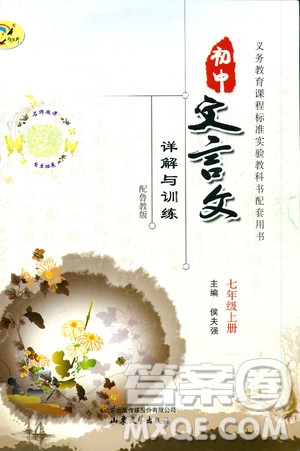 义务教育课程标准实验教科书配套用书
初中
文言文
详解与训练
配鲁教版
七年级上册
主编 侯夫强
名师教译
答案圈
山东出版传媒股份有限公司